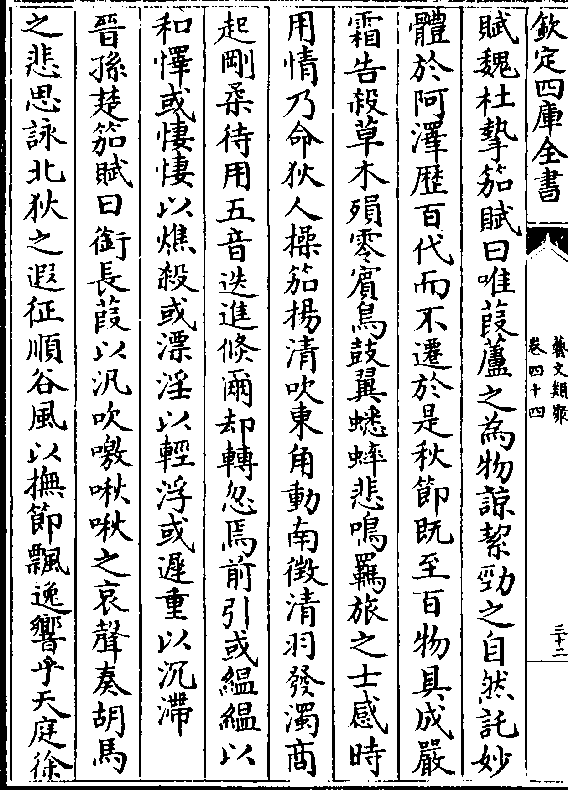 欽定四庫全書
藝文類聚
卷四十四
三十二
賦魏杜摯笳賦曰唯葭蘆之為物諒絜勁之自然託妙
體於阿澤歴百代而不遷於是秋節既至百物具成嚴
霜告殺草木殞零賔鳥鼓翼蟋蟀悲鳴羈旅之士感時
用情乃命狄人操笳揚清吹東角動南徴清羽發濁商
起剛柔待用五音迭進倏爾却轉忽焉前引或緼緼以
和懌或悽悽以燋殺或漂淫以輕浮或遲重以沉滯
晉孫楚笳賦曰銜長葭以汎吹噭啾啾之哀聲奏胡馬
之悲思詠北狄之遐征順谷風以撫節飄逸響乎天庭徐